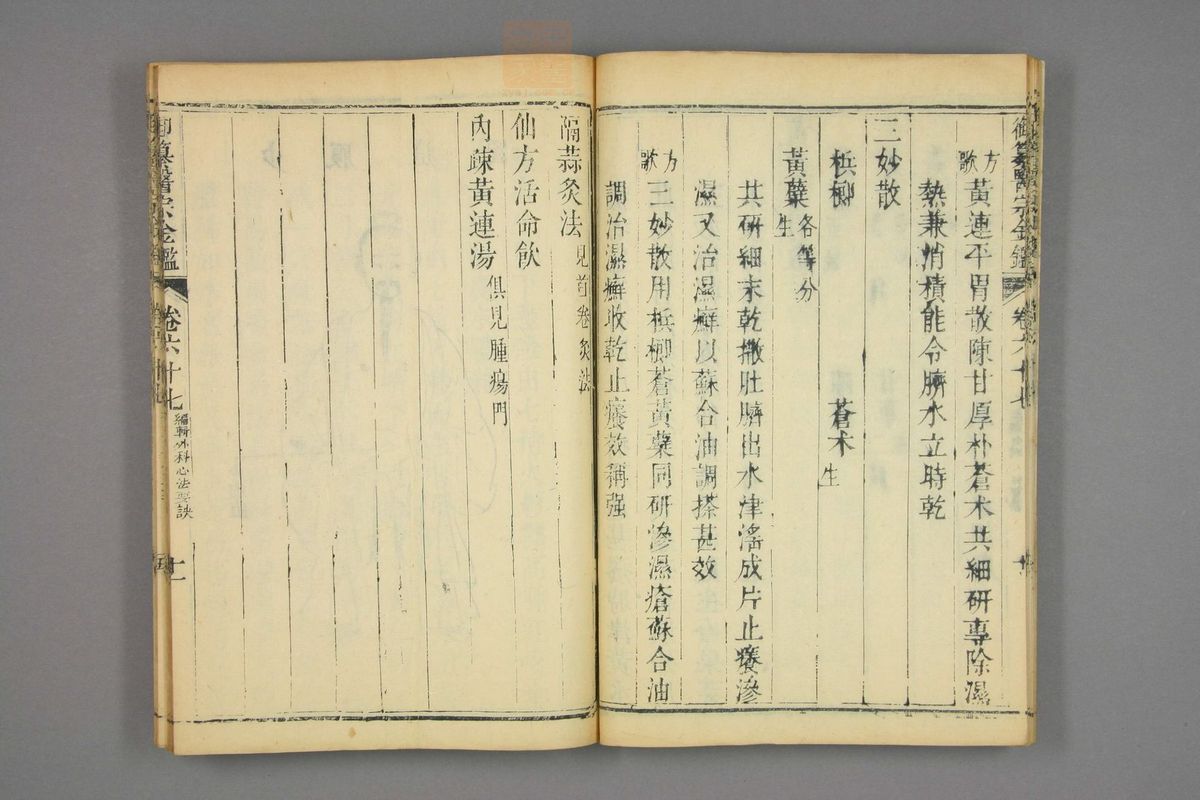 御纂醫宗金鑑 卷六十七
方歌 黃連平胃散陳甘厚朴蒼术共細研專除濕
熱兼消積能令臍水立時乾
三妙散
檳榔 蒼术生
黃蘗生各等分
共研細末乾撒肚臍出水津淫成片止癢滲
濕又治濕癬以蘇合油調搽甚效
方歌 三妙散用檳榔蒼黃蘗同研滲濕瘡蘇合油
調治濕癬收乾止癢效稱强
隔蒜灸法 見首卷灸法
仙方活命飮
內疎黃連湯 俱見腫瘍門
御纂醫宗金鑑 卷六十七 編輯外科心法要訣